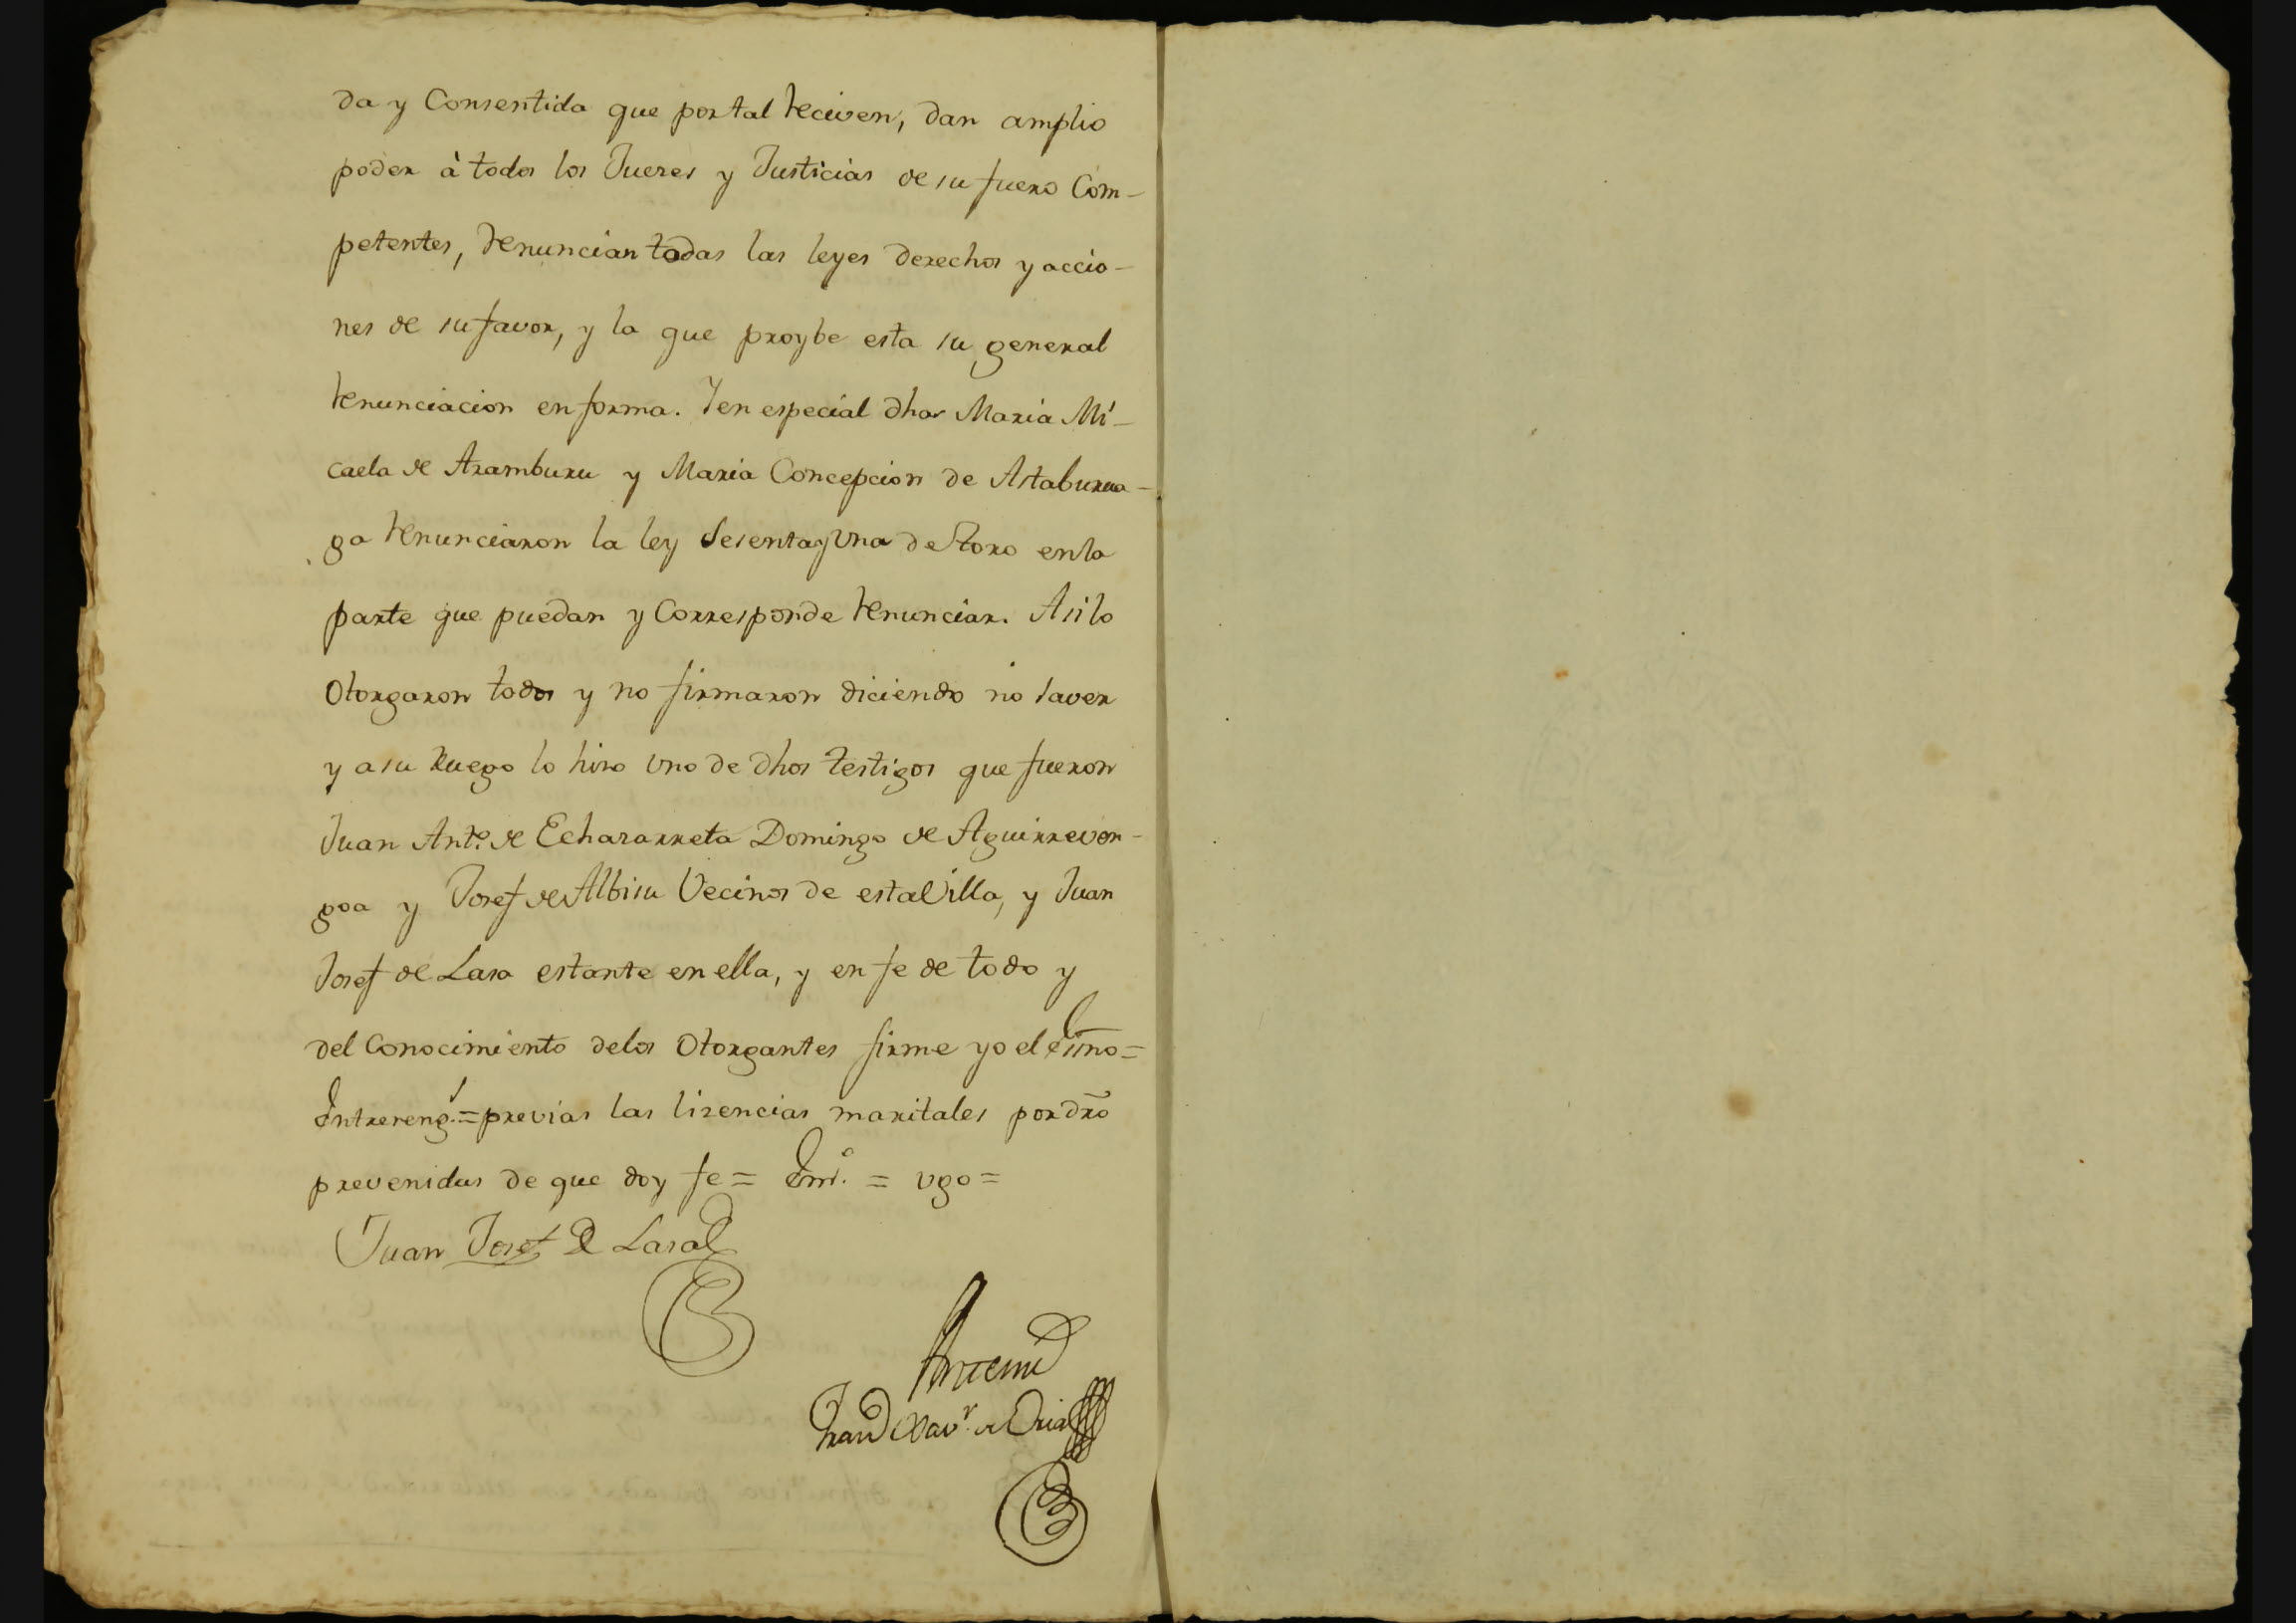 da y Consentida que por tal reciven, dan amplio
poder à todos los Jueces y Justicias de su fuero Com-
petentes, renuncian todas las leyes derechos y accio-
nes de su favor, y la que proybe esta su general
renunciacion en forma. Y en especial dhas Maria Mi-
caela de Aramburu y Maria Concepcion de Astaburua-
ga renunciaron la ley Sesenta y Una de Toro en la
parte que puedan y Corresponde renunciar. Asi lo
Otorgaron todos y no firmaron diciendo no saver
y a su ruego lo hizo Uno de dhos testigos que fueron
Juan Antº. de Echazarreta Domingo de Aguirreven-
goa y Josef de Albisu Vecinos de esta Villa, y Juan
Josef de Lasa estante en ella, y en fe de todo y
del Conocimiento de los Otorgantes firme yo el essno=
Entrereng.s=previas las lizencias maritales por dro
prevenidas de que doy fe= Emº. = vgo=
Juan Josef de Lasa
Antemi
Fran.co Xav.r de Oria